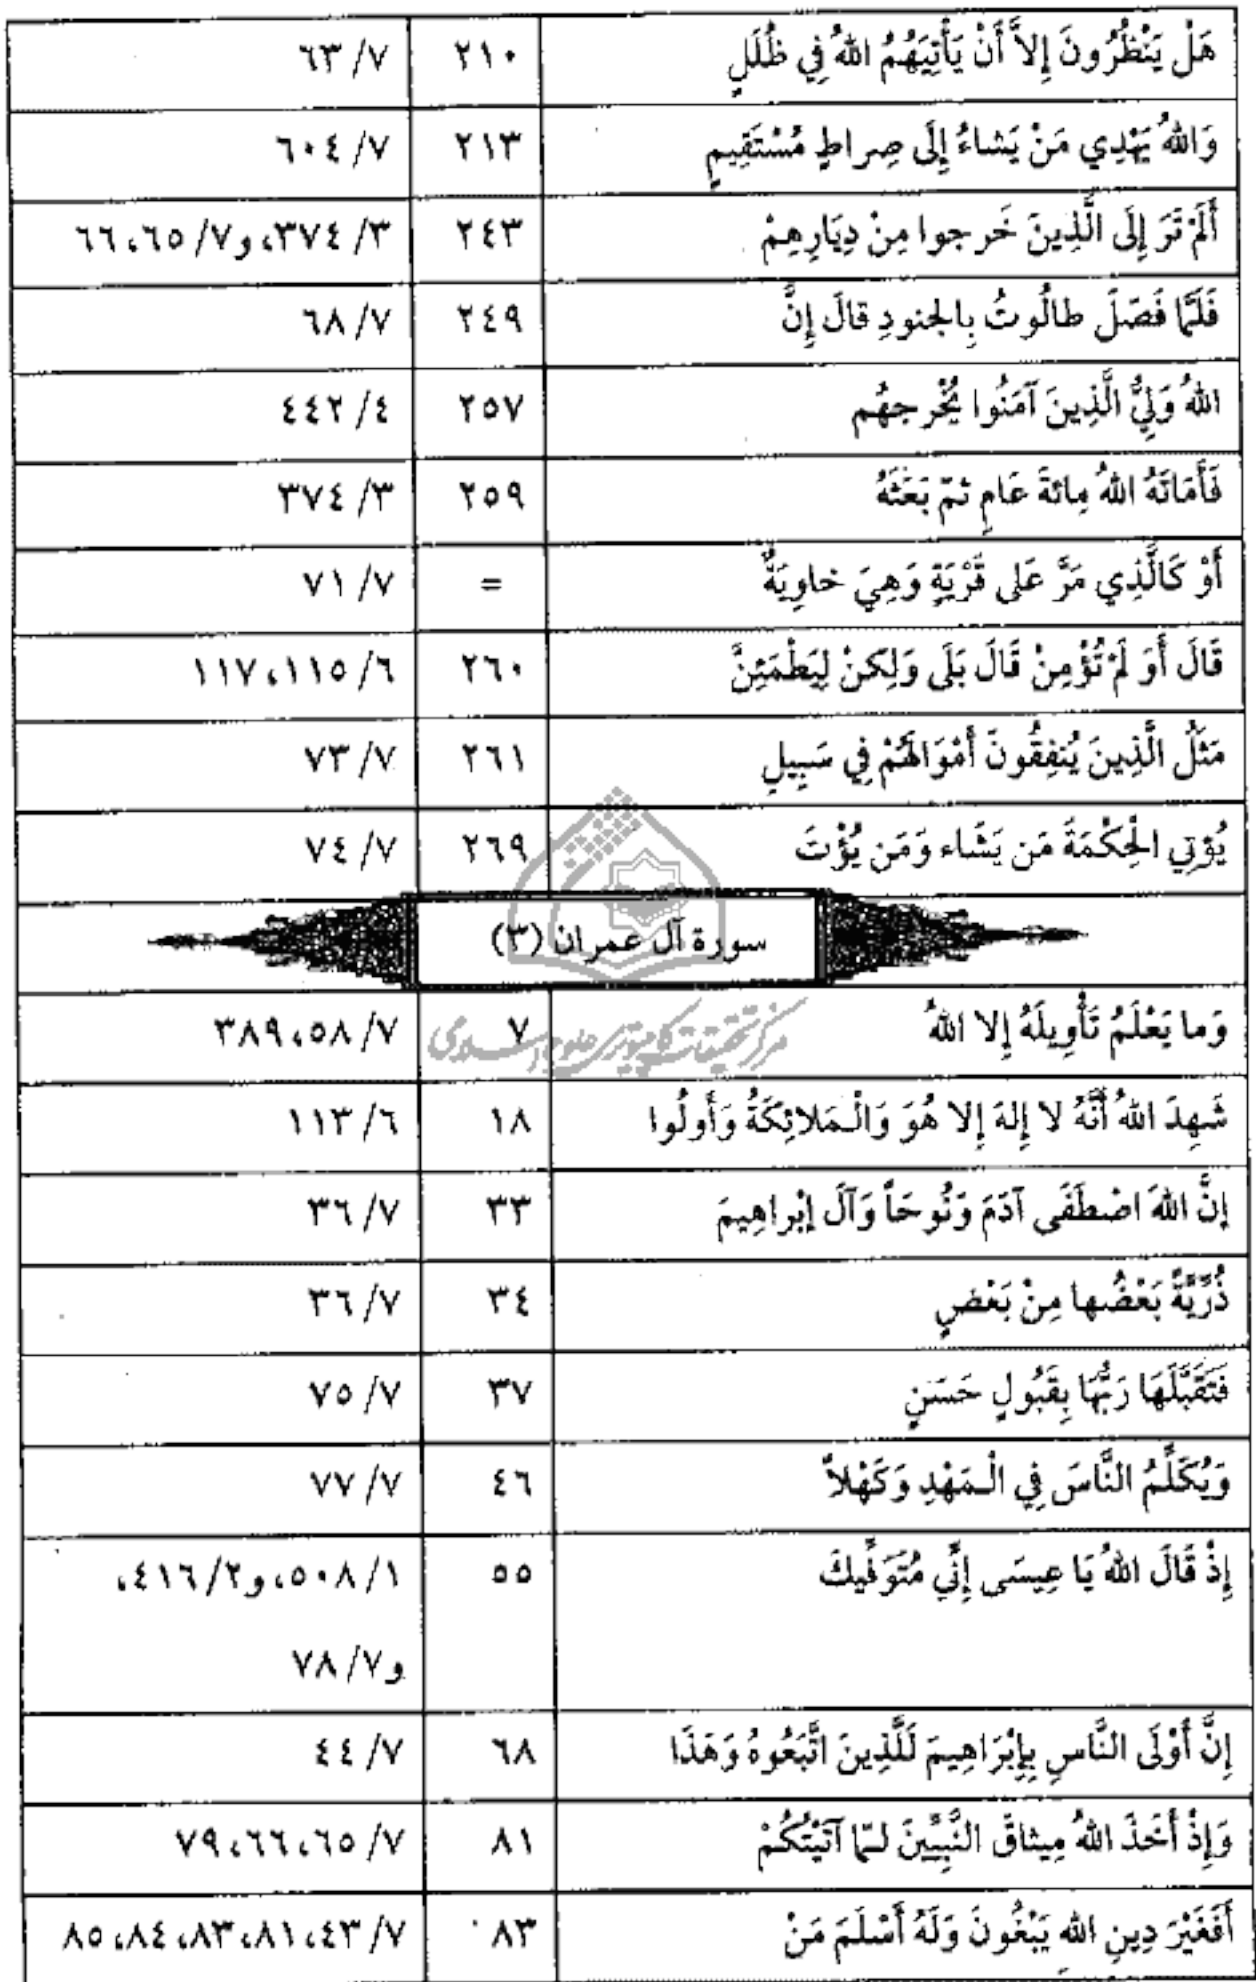 هَلْ يَنْظُرُونَ إِلاَّ أَنْ يَأْتِيَهُمُ اللهُ فِي ظُلَلٍ ٢١٠ ٧/ ٦٣
وَاللهُ يَهْدِي مَنْ يَشاءُ إِلَى صِراطٍ مُسْتَقِيمٍ ٢١٣ ٧/ ٦٠٤
أَلَمْ تَرَ إِلَى الَّذِينَ خَرجوا مِنْ دِيَارِهِمْ ٢٤٣ ٣/ ٣٧٤، و٧/ ٦٥، ٦٦
فَلَمَّا فَصَلَ طالُوتُ بِالجنودِ قالَ إِنَّ ٢٤٩ ٧/ ٦٨
اللهُ وَلِيُّ الَّذِينَ آمَنُوا يُخْرجهُم ٢٥٧ ٤/ ٤٤٢
فَأَمَاتَهُ اللهُ مِائةَ عَامٍ ثمّ بَعَثَهُ ٢٥٩ ٣/ ٣٧٤
أَوْ كَالَّذِي مَرَّ عَلى قَرْيَةٍ وَهِيَ خاوِيَةٌ = ٧/ ٧١
قَالَ أَوَ لَمْ تُؤْمِنْ قَالَ بَلَى وَلكِنْ لِيَطْمَئِنَّ ٢٦٠ ٦/ ١١٥، ١١٧
مَثَلُ الَّذِينَ يُنفِقُونَ أَمْوَالَهُمْ فِي سَبِيلِ ٢٦١ ٧/ ٧٣
يُؤتِي الْحِكْمَةَ مَن يَشَاء وَمَن يُؤْتَ ٢٦٩ ٧/ ٧٤
سورة آل عمران (٣)
وَما يَعْلَمُ تَأْوِيلَهُ إِلا اللهُ ٧ ٧/ ٥٨، ٣٨٩
مركز تحقيقات كامپيوتری علوم اسلامی
شَهِدَ اللهُ أَنَّهُ لا إِلهَ إِلا هُوَ وَالْمَلائِكَةُ وَأُولُوا ١٨ ٦/ ١١٣
إنَّ اللهَ اصْطَفَى آدَمَ وَنُوحَاً وَآلَ إبْراهِيمَ ٣٣ ٧/ ٣٦
ذُرِّيَّةً بَعْضُها مِنْ بَعْضٍ ٣٤ ٧/ ٣٦
فَتَقَبَّلَهَا رَبُّهَا بِقَبُولٍ حَسَنٍ ٣٧ ٧/ ٧٥
وَيُكَلِّمُ النَّاسَ فِي الْمَهْدِ وَكَهْلاً ٤٦ ٧/ ٧٧
إِذْ قَالَ اللهُ يَا عِيسَى إِنِّي مُتَوَفِّيكَ ٥٥ ١/ ٥٠٨، و٢/ ٤١٦،
و٧/ ٧٨
إِنَّ أَوْلَى النَّاسِ بِإِبْرَاهِيمَ لَلَّذِينَ اتَّبَعُوهُ وَهَذَا ٦٨ ٧/ ٤٤
وَإِذْ أَخَذَ اللهُ مِيثاقَ النَّبِيِّينَ لمّا آتَيْتُكُمْ ٨١ ٧/ ٦٥، ٦٦، ٧٩
أَفَغَيْرَ دِينِ اللهِ يَبْغُونَ وَلَهُ أَسْلَمَ مَنْ ٨٣ ٧/ ٤٣، ٨١، ٨٣، ٨٤، ٨٥